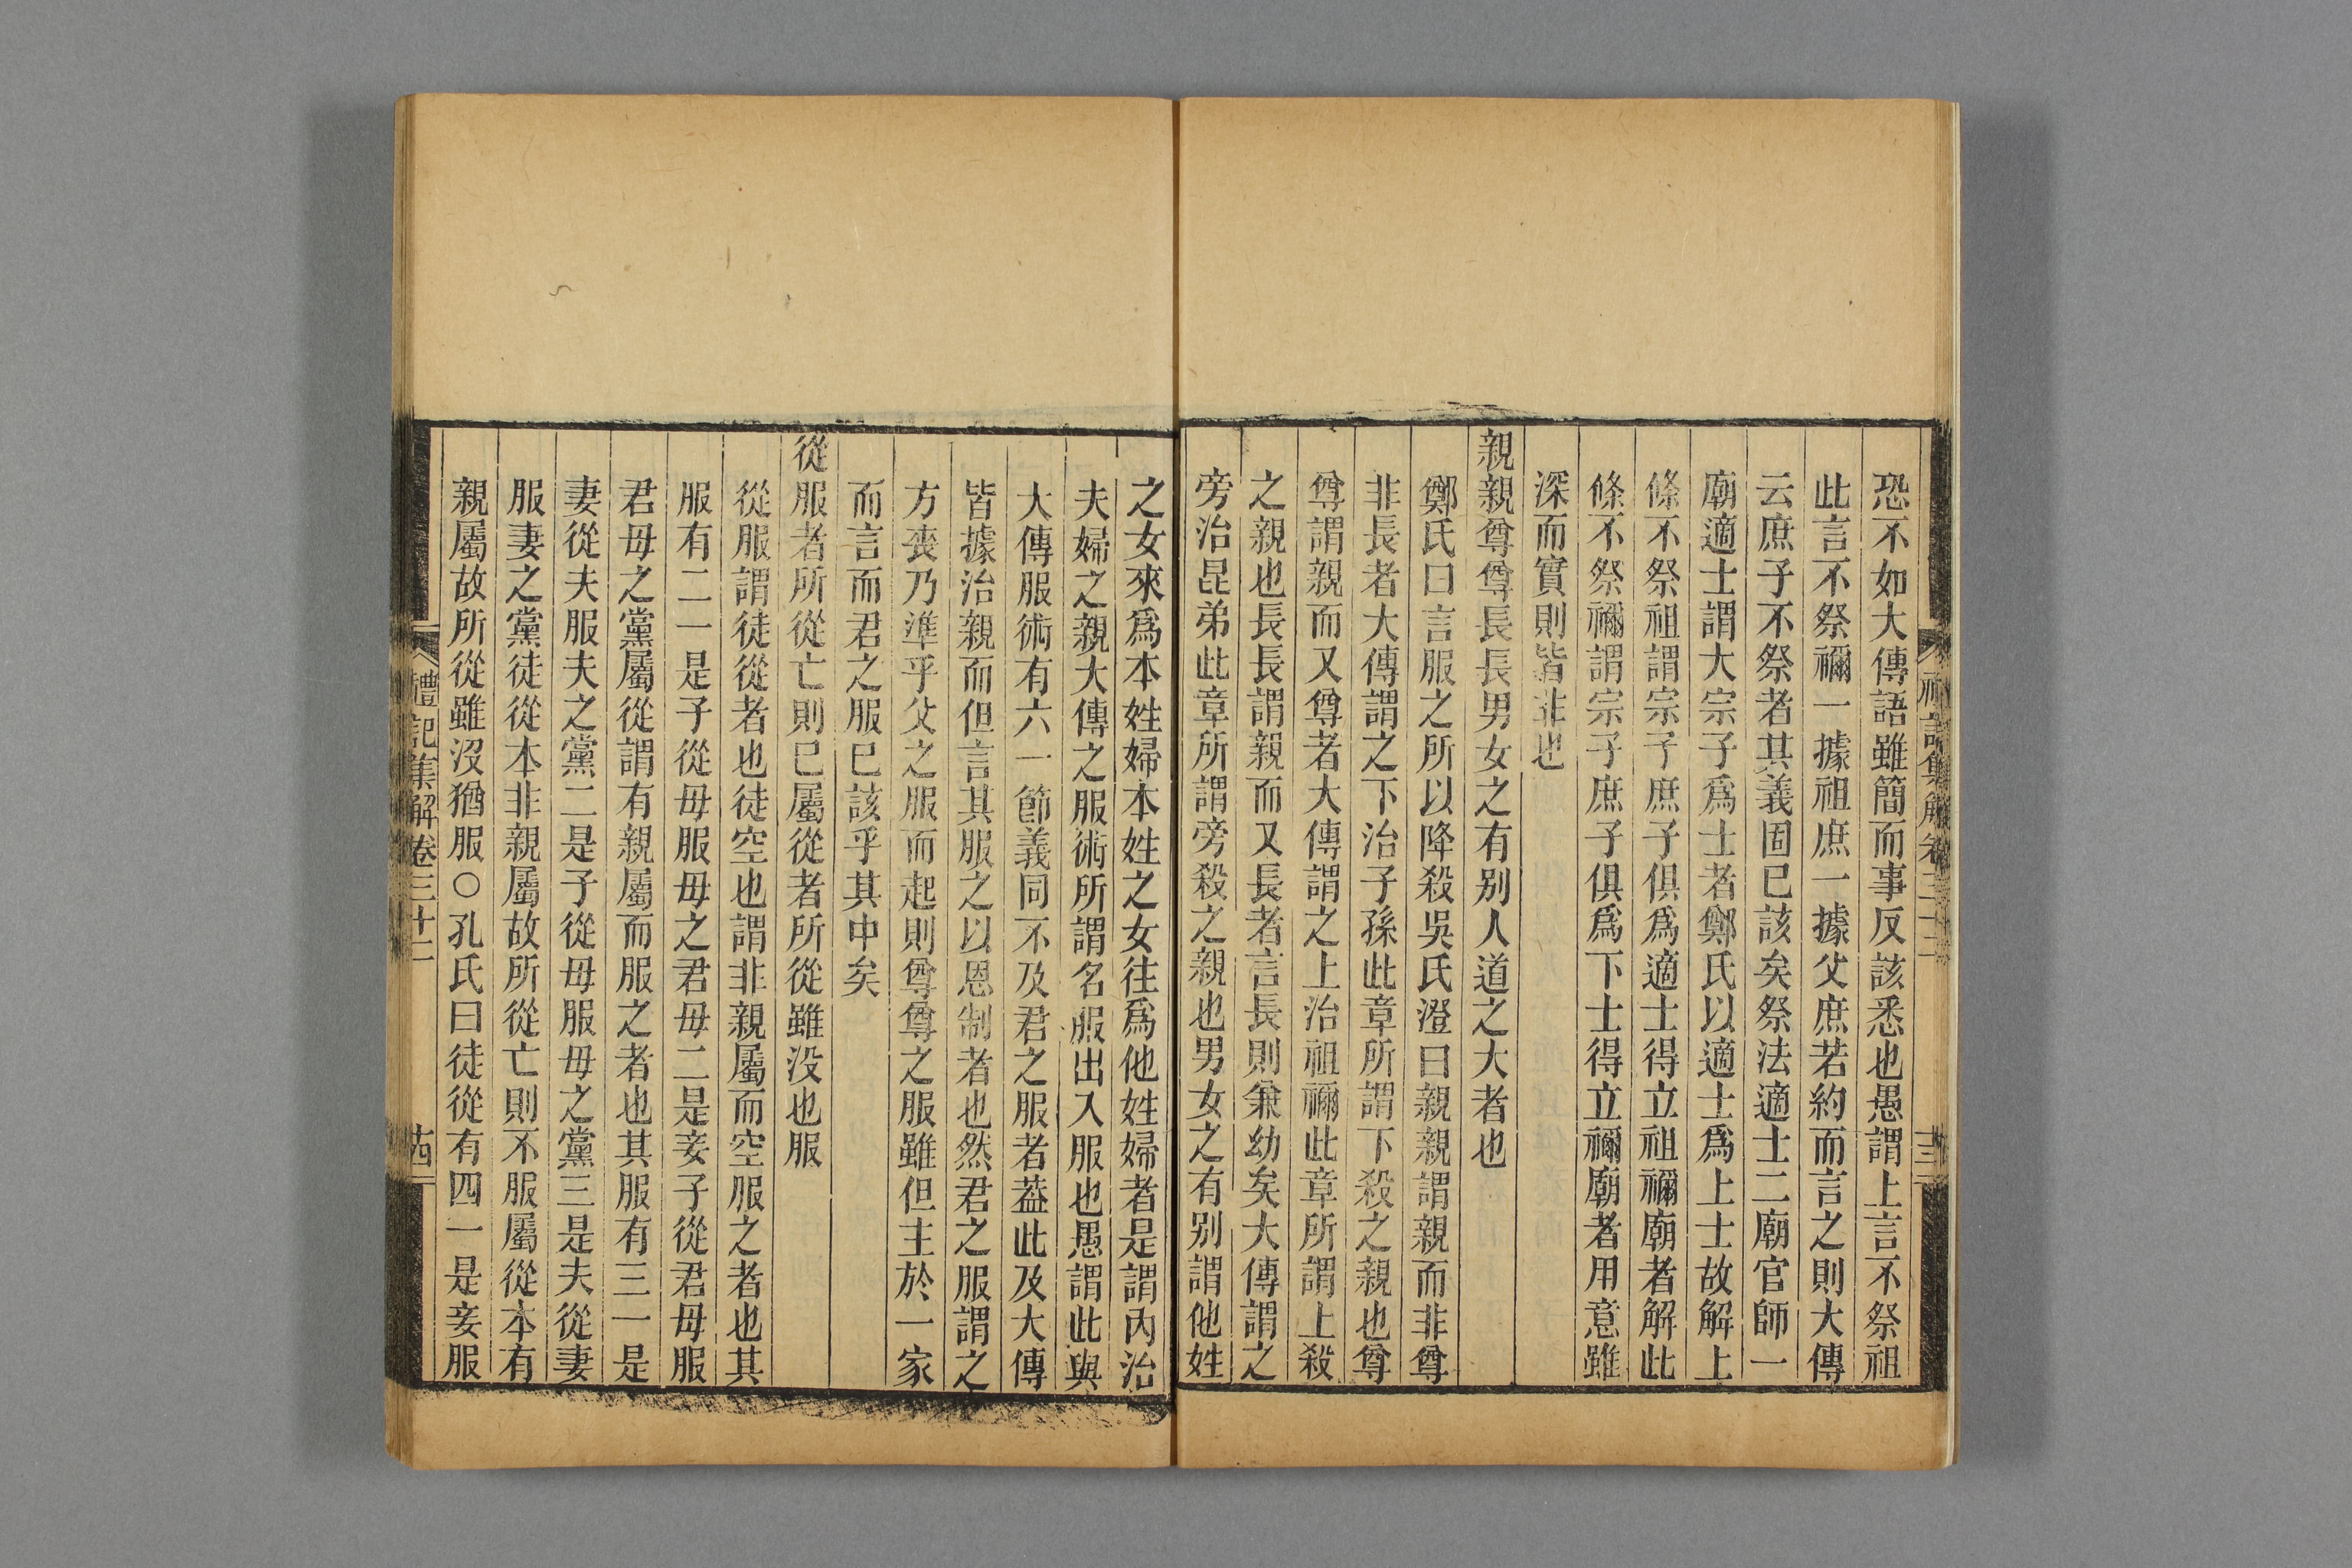 恐不如大傳語雖簡而事反該悉也愚謂上言不祭祖
此言不祭禰一據祖庶一據父庶若約而言之則大傳
云庶子不祭者其義固已該矣祭法適士二廟官師一
廟適士謂大宗子爲士者鄭氏以適士爲上士故解上
條不祭祖謂宗子庶子俱爲適士得立祖禰廟者解此
條不祭禰謂宗子庶子俱爲下士得立禰廟者用意雖
深而實則皆非也
親親尊尊長長男女之有别人道之大者也
鄭氏曰言服之所以降殺吳氏澄曰親親謂親而非尊
非長者大傳謂之下治子孫此章所謂下殺之親也尊
尊謂親而又尊者大傳謂之上治祖禰此章所謂上殺
之親也長長謂親而又長者言長則兼幼矣大傳謂之
旁治昆弟此章所謂旁殺之親也男女之有别謂他姓
之女來爲本姓婦本姓之女往爲他姓婦者是謂內治
夫婦之親大傳之服術所謂名服出入服也愚謂此與
大傳服術有六一節義同不及君之服者葢此及大傳
皆據治親而但言其服之以恩制者也然君之服謂之
方喪乃準乎父之服而起則尊尊之服雖但主於一家
而言而君之服已該乎其中矣
從服者所從亡則已屬從者所從雖没也服
從服謂徒從者也徒空也謂非親屬而空服之者也其
服有二一是子從母服母之君母二是妾子從君母服
君母之黨屬從謂有親屬而服之者也其服有三一是
妻從夫服夫之黨二是子從母服母之黨三是夫從妻
服妻之黨徒從本非親屬故所從亡則不服屬從本有
親屬故所從雖沒猶服○孔氏曰徒從有四一是妾服
禮記集解卷三十二
十四